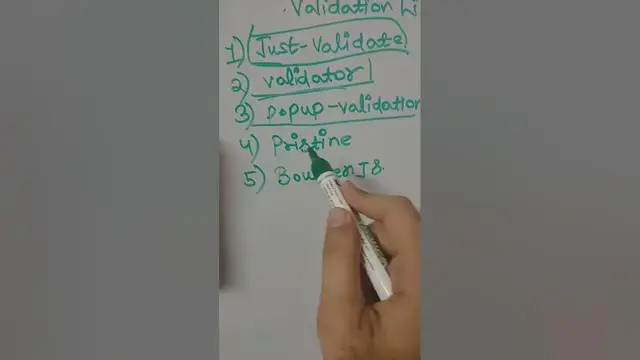 Validation Li
1) Just-Validate
2) validator
3) Popup-validation
4) Pristine
5) JS